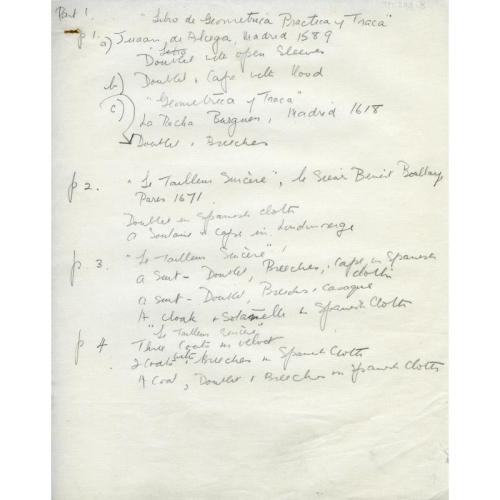 Part 1.
"Libro de Geometrica Practica y Traca"
p 1. a) Juaan, de Alcega, Madrid 1589
Doublet with open Sleeves
b) Doublet & Cape with Hood
c) "Geometrica y Traca"
La Rocha Burguen, Madrid 1618
Doublet & Breeches
p 2. "Le Tailleur Sincère", le Sieur Benoit Boullay
Paris 1671.
Doublet in Spanish cloth
a Soutaine & Cape in
p 3. "Le Tailleur Sincère",
a Suit - Doublet, Breeches, & Cape in Spanish
cloth
a Suit - Doublet, Breeches & casaque
A cloak & Sotanelle in Spanish Cloth
p 4 "Le Tailleur Sincère"
Three Coats in velvet
2 Coats with breeches in Spanish Cloth
A Coat, Doublet & Breeches in Spanish Cloth